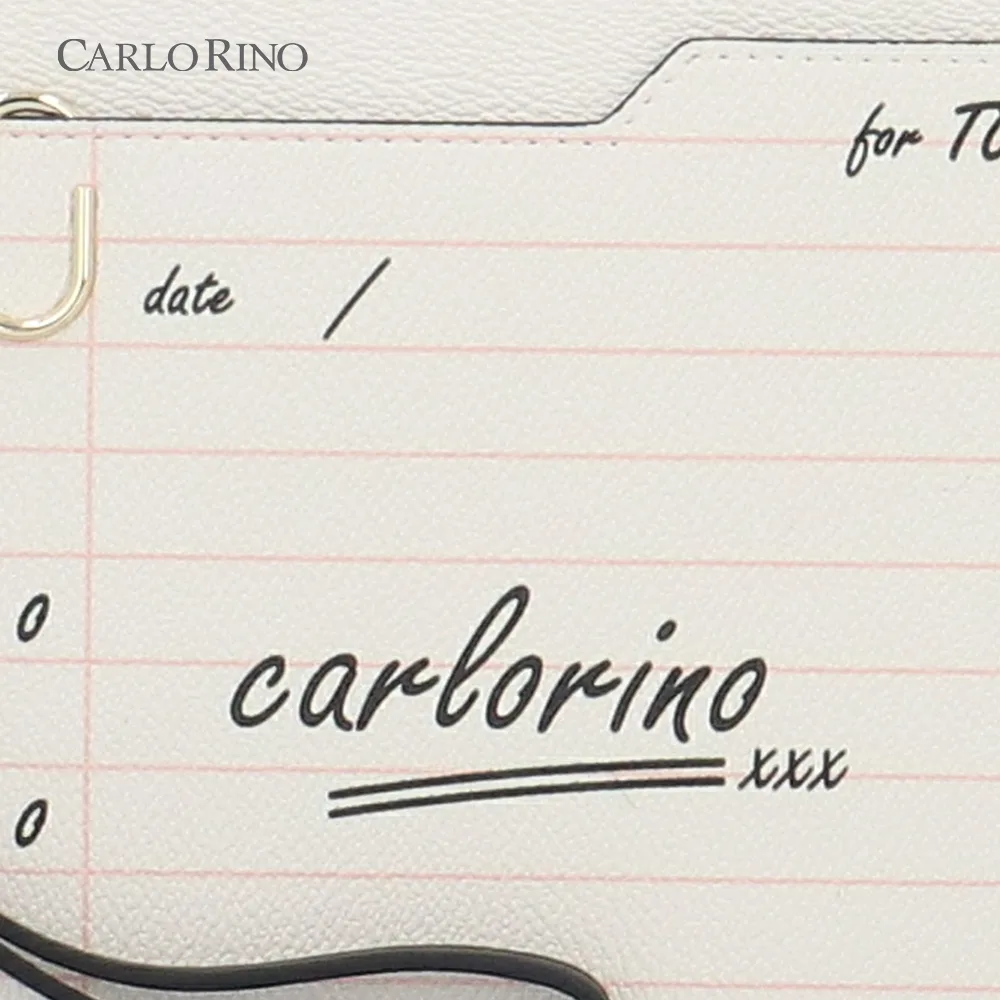 CARLO RINO
for TO
date /
o
carlorino
xxx
o